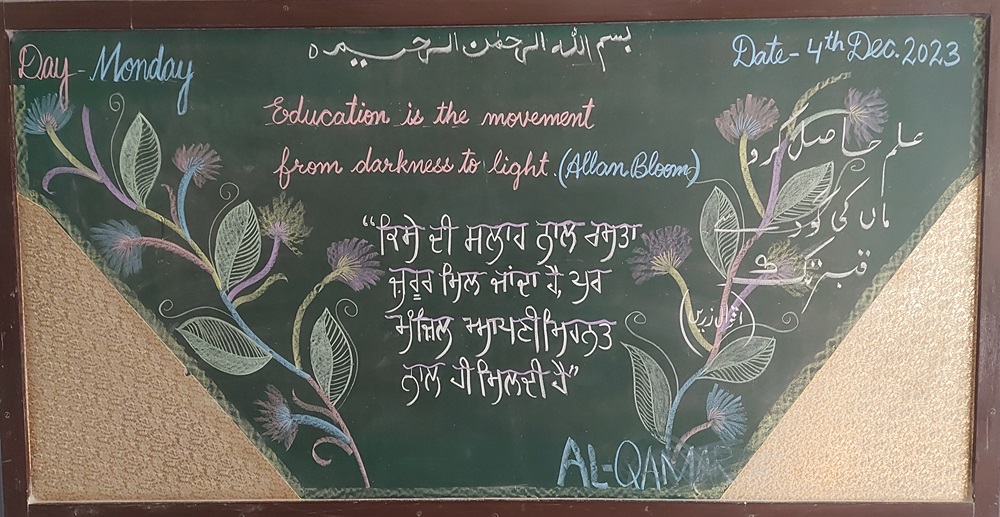 بسم اللہ الرحمٰن الرحیم
Day - Monday
Date - 4th Dec. 2023
Education is the movement
from darkness to light. (Allan Bloom)
“ਕਿਸੇ ਦੀ ਸਲਾਹ ਨਾਲ ਰਸਤਾ
ਜ਼ਰੂਰ ਮਿਲ ਜਾਂਦਾ ਹੈ, ਪਰ
ਮੰਜ਼ਿਲ ਆਪਣੀ ਮਿਹਨਤ
ਨਾਲ ਹੀ ਮਿਲਦੀ ਹੈ”
علم حاصل کرو
ماں کی گود سے
قبر تک
اقوال زریں
AL-QAMAR